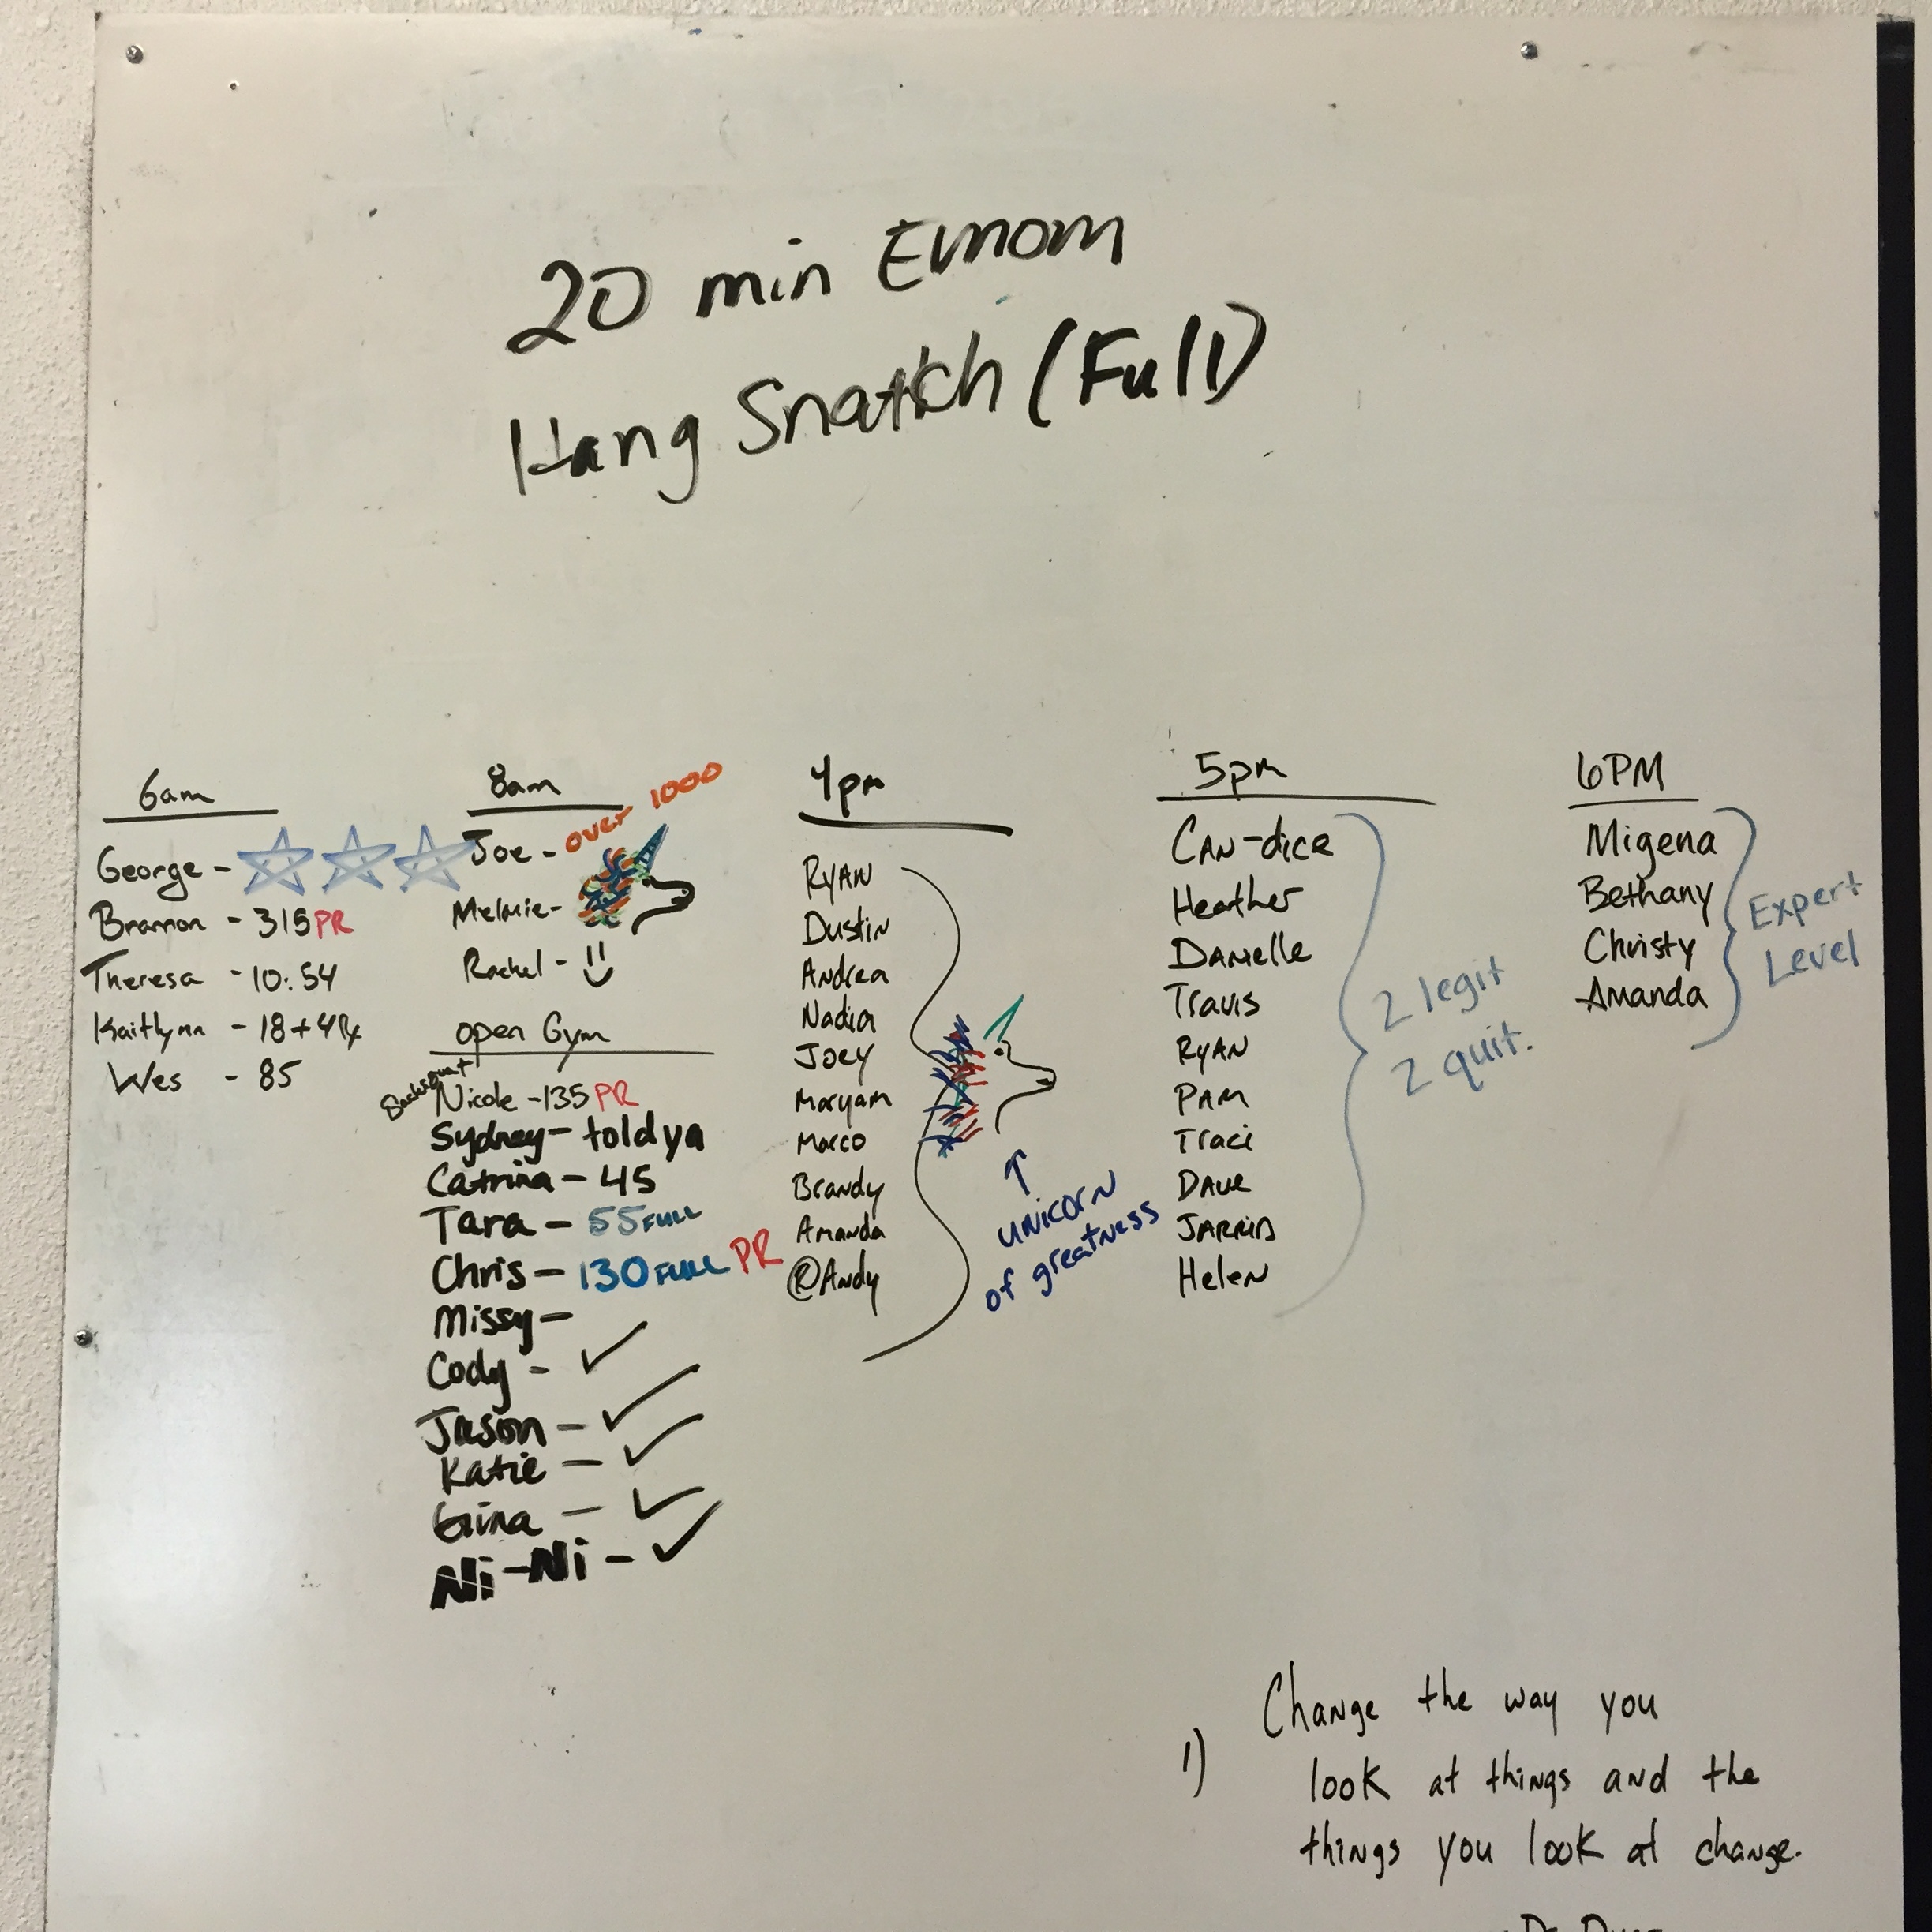 20 min Emom
Hang Snatch (Full)
6am
George -
Brannon - 315 PR
Theresa - 10:54
Kaitlynn - 18+4 Rx
Wes - 85
8am
Joe - over 1000
Melanie -
Rachel -
open Gym
Backsquat
Nicole - 135 PR
Sydney - told ya
Catrina - 45
Tara - 55 FULL
Chris - 130 FULL PR
Missy -
Cody - ✓
Jason - ✓
Katie - ✓
Gina - ✓
Ni-Ni - ✓
4pm
RYAN
Dustin
Andrea
Nadia
Joey
Maryam
Marco
Brandy
Amanda
@Andy
unicorn
of greatness
5pm
CAN-dice
Heather
Danielle
Travis
RYAN
PAM
Traci
Dave
JARRID
Helen
2 legit
2 quit.
6PM
Migena
Bethany
Christy
Amanda
Expert
Level
1) Change the way you
look at things and the
things you look at change.